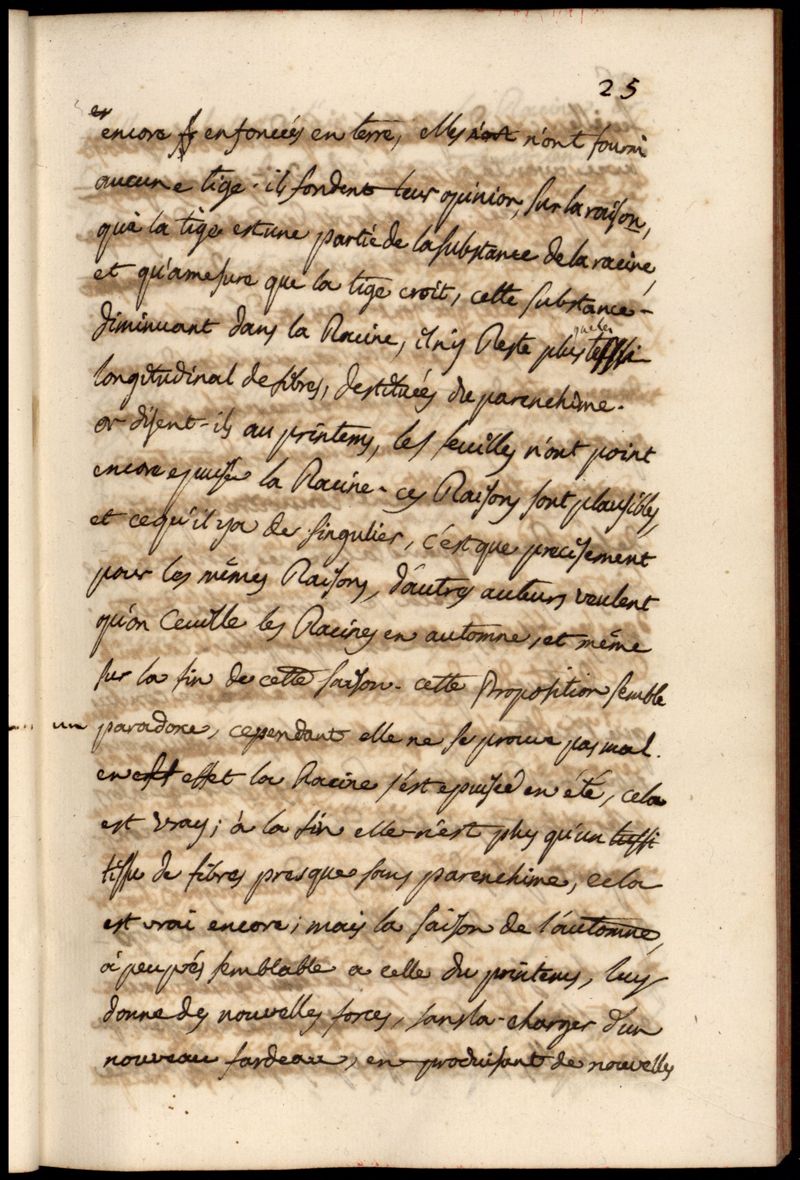 25
et
encore enfonceés en terre, elles n'ont n'ont fourni
aucune tige. ils fondent leur opinion, sur la raison,
que la tige est une partie de la substance de la racine,
et qu'amesure que la tige croit, cette substance-
diminuant dans la Racine, il n'y Reste plus que les tissu
longitudinal de fibres, destituées de parenchime.
or disent-ils au printems, les feuilles n'ont point
encore epuisé la Racine. ces Raisons sont plausibles,
et ce qu'il ya de singulier, c'est que precisement
pour les mêmes Raisons, d'autres auteurs veulent
qu'on Ceuille les Racines en automne, et même
sur la fin de cette saison. cette Proposition semble
un paradoxe, cependant elle ne se prouve pas mal.
en est effet la Racine s'est epuisée en été, cela
est vray; à la fin elle n'est plus qu'un tussi
tissu de fibres presque sans parenchime, cela
est vrai encore; mais la saison de l'automne,
à peu prés semblable a celle du printems, luy
donne des nouvelles forces, sans la-charger d'un
nouveau fardeau, en produisant de nouvelles